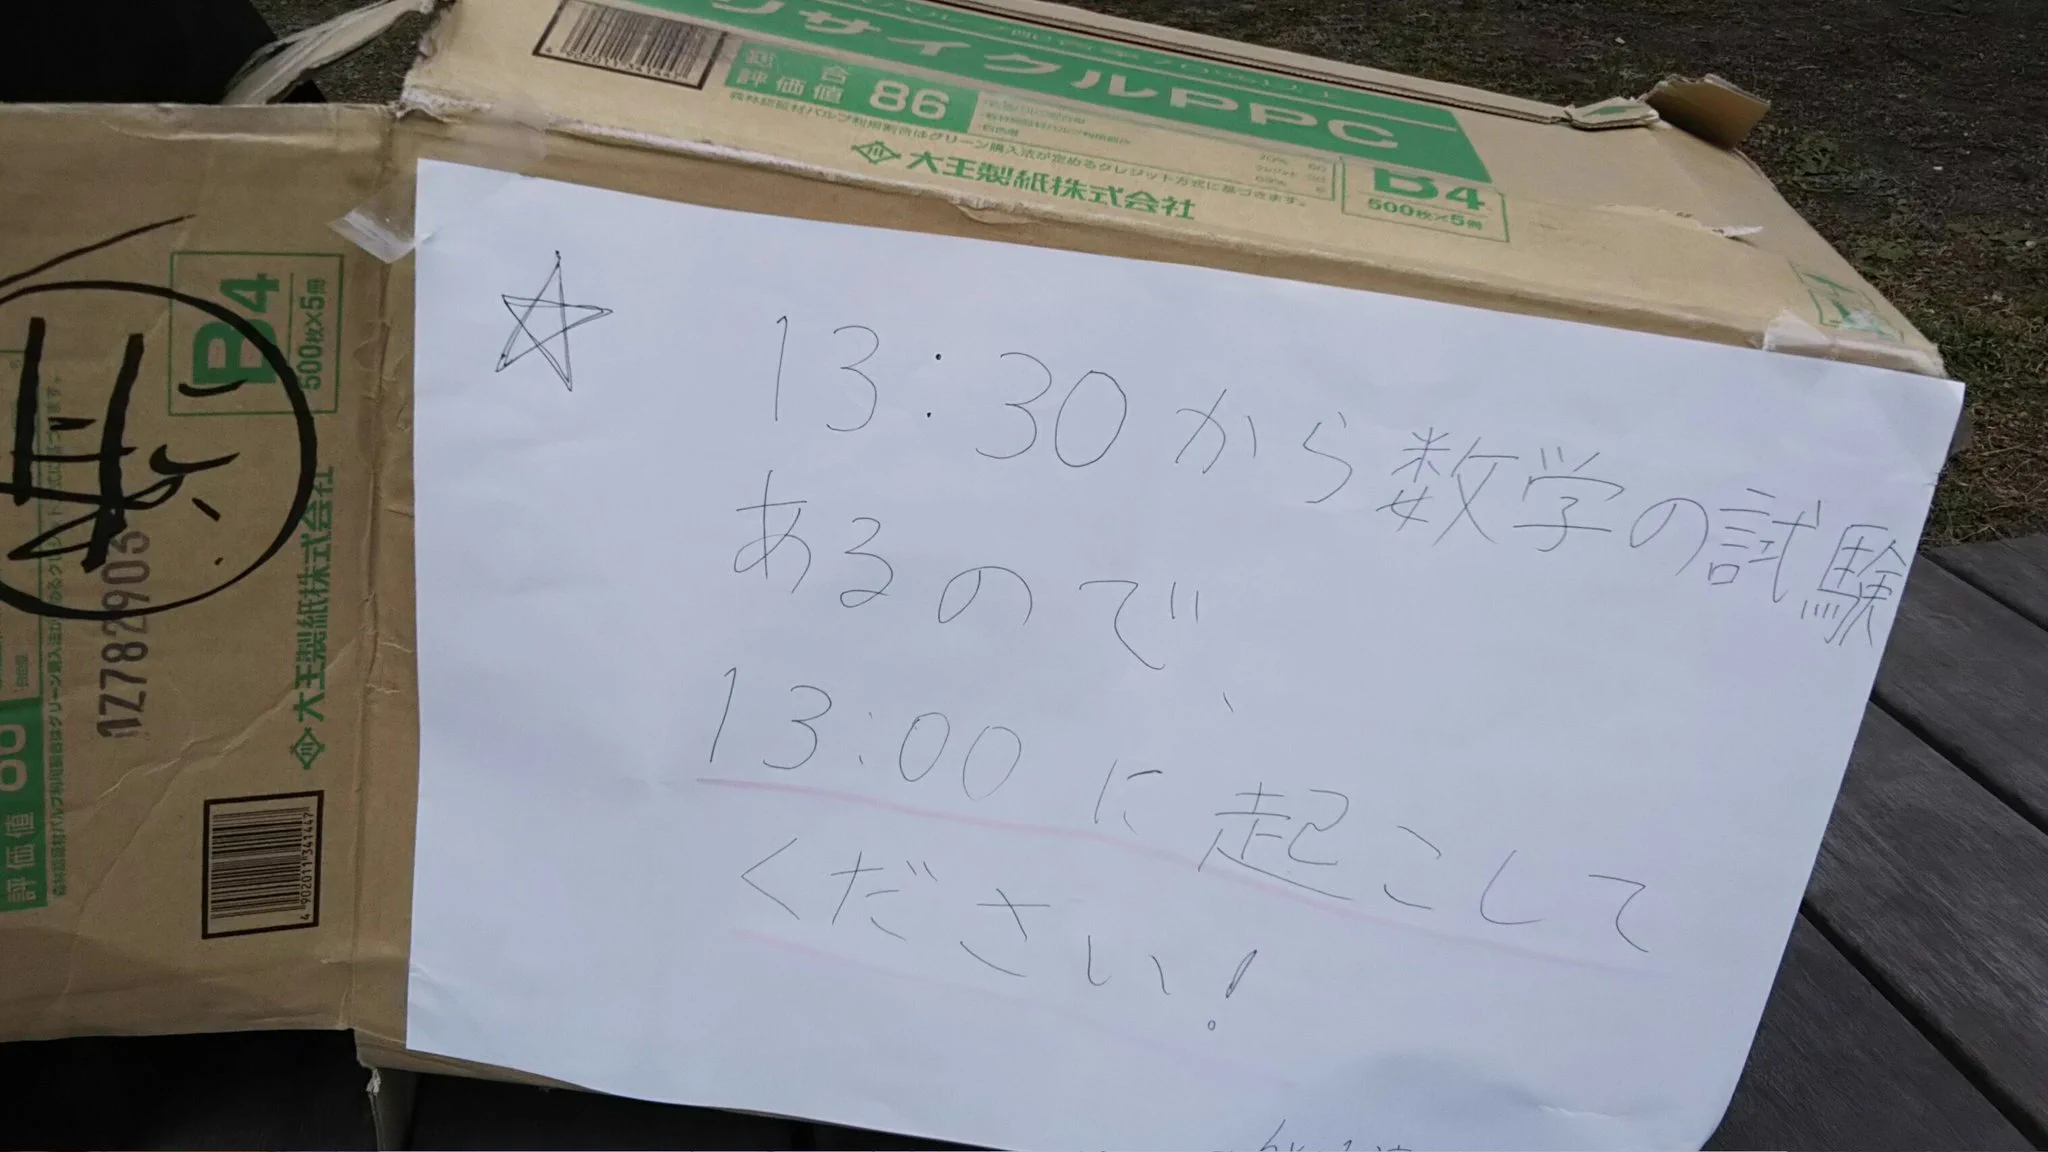 リサイクルPPC
総合
評価値 86
森林認証材パルプ利用割合はグリーン購入法が定めるクレジット方式に基づきます。
大王製紙株式会社
B4
500枚×5冊
4 902011 341447
☆ 13:30から数学の試験
あるので、
13:00に起こして
ください!
B4
500枚×5冊
大王製紙株式会社
1Z782905
評価値
4 902011 341447